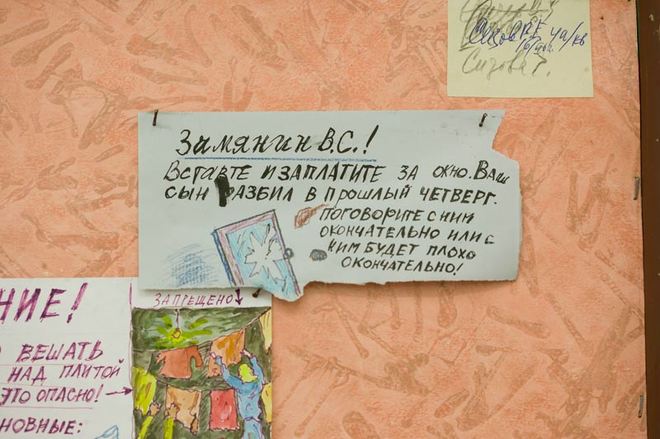 Замянин В.С.!
Вставте и заплатите за окно. Ваш
сын разбил в прошлый четверг.
поговорите с ним
окончательно или с
ним будет плохо
окончательно!
Сизова г.
НИЕ!
ВЕШАТЬ
НАД ПЛИТОЙ
ЭТО ОПАСНО!
НОВНЫЕ:
ЗАПРЕЩЕНО